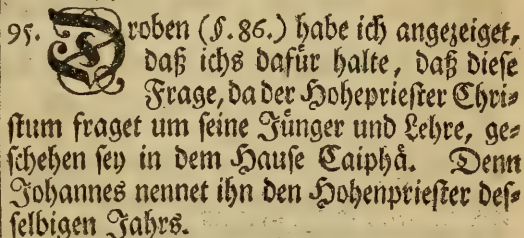 95. Droben (§. 86.) habe ich angezeiget,
daß ichs dafür halte, daß diese
Frage, da der Hohepriester Chri=
stum fraget um seine Jünger und Lehre, ge=
schehen sey in dem Hause Caiphä. Denn
Johannes nennet ihn den Hohenpriester des=
selbigen Jahrs.